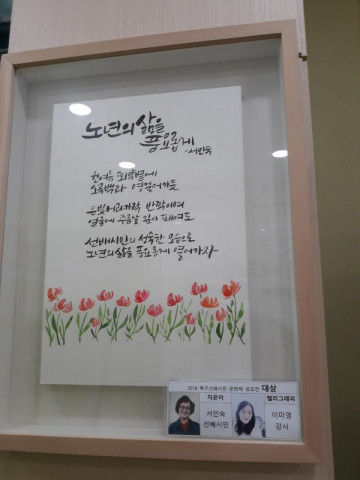 노년의 삶을
풍요롭게
-서인숙
한여름 뙤약볕에
오곡백과 영글어가듯
은빛머리카락 반짝이며
얼굴에 주름살 깊이 패여도
선배시민의 성숙한 모습으로
노년의 삶을 풍요롭게 열어가자
2018 북구선배시민 문화제 공모전 대상
지은이
캘리그래피
서인숙
선배시민
이미영
강사